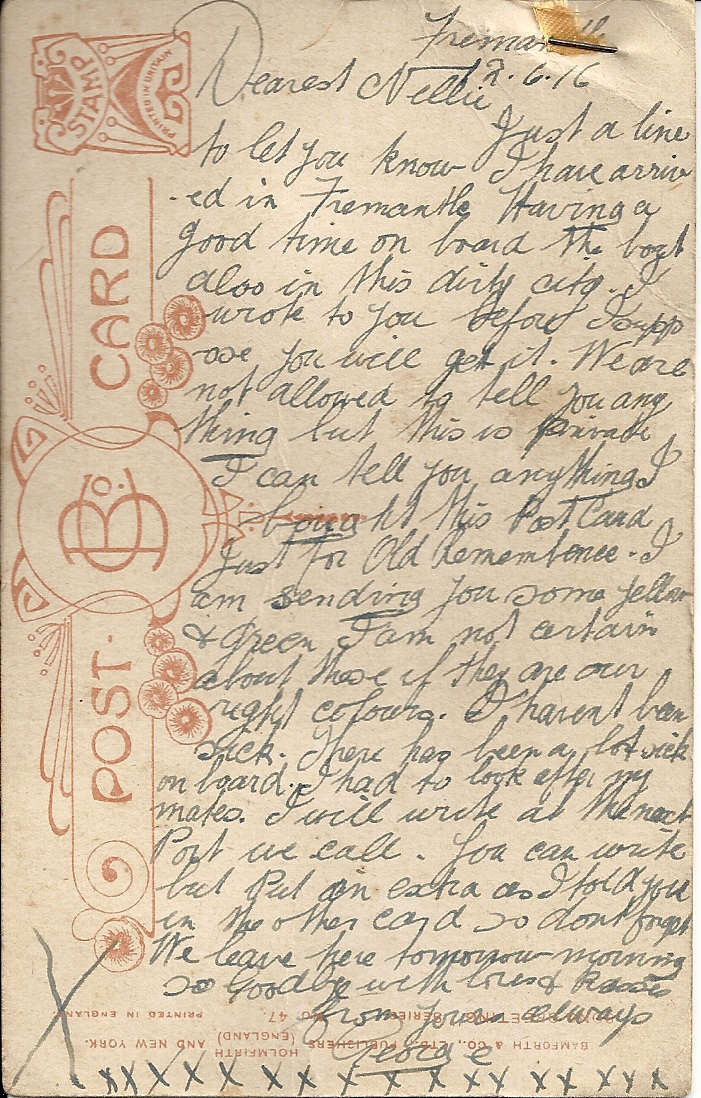 Fremantle
2.6.16
Dearest Nellie
Just a line
to let you know I have arriv
-ed in Fremantle Having a
good time on board the boat
also in this dirty city. I
wrote to you before I supp
ose you will get it. We are
not allowed to tell you any
thing but this is private
I can tell you anything I
bought this Post Card
Just for Old Remembence. I
am sending you some yellow
& Green I am not certain
about these if they are our
right colours. I havent been
sick. There has been a lot sick
on board. I had to look after my
mates. I will write at the next
Port we call. You can write
but Put an extra as I told you
in the other card so dont forget
We leave here tomorrow morning
so Goodbye with loves & Kisses
from yours always
George
X
X X X X X X X X X X X X X X X X
STAMP
PRINTED IN BRITAIN
POST-CARD
B & Co.
BAMFORTH & CO., LTD. PUBLISHERS
HOLMFIRTH (ENGLAND) AND NEW YORK.
GREETING SERIES No 47.
PRINTED IN ENGLAND